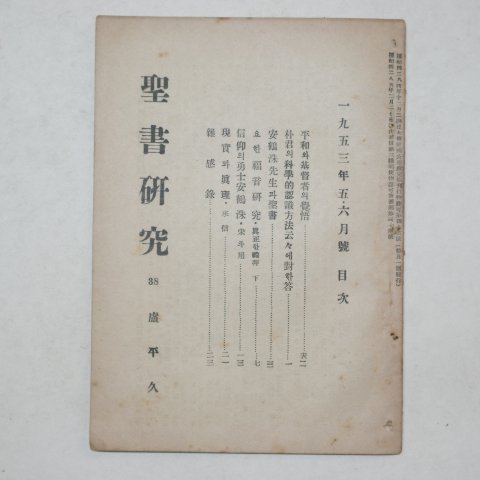 一九五三年五·六月號 目次
平和와基督者의覺悟……表二
朴君의科學的認識方法云々에對한答……一
安鶴洙先生과聖書……三
요한福音硏究·眞正한禮拜 下……七
信仰의勇士安鶴洙·宋斗用……一三
現實과眞理·承信……二一
雜感錄……二三
聖書硏究 38 盧平久